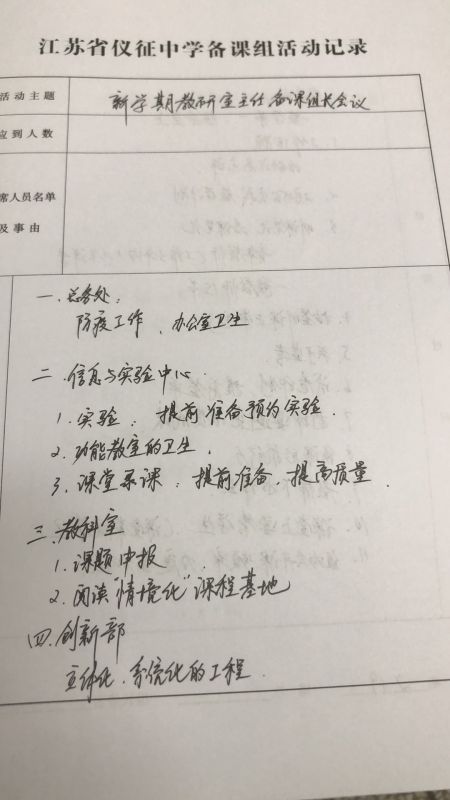 江苏省仪征中学备课组活动记录
活动主题 新学期教研室主任备课组长会议
应到人数
席人员名单
及事由
一.总务处:
防疫工作、办公室卫生
二.信息与实验中心.
1.实验:提前准备预约实验.
2.功能教室的卫生.
3.课堂录课:提前准备,提高质量.
三.教科室
1.课题申报.
2.阅读“情境化”课程基地
四.创新部
立体化.系统化的工程.